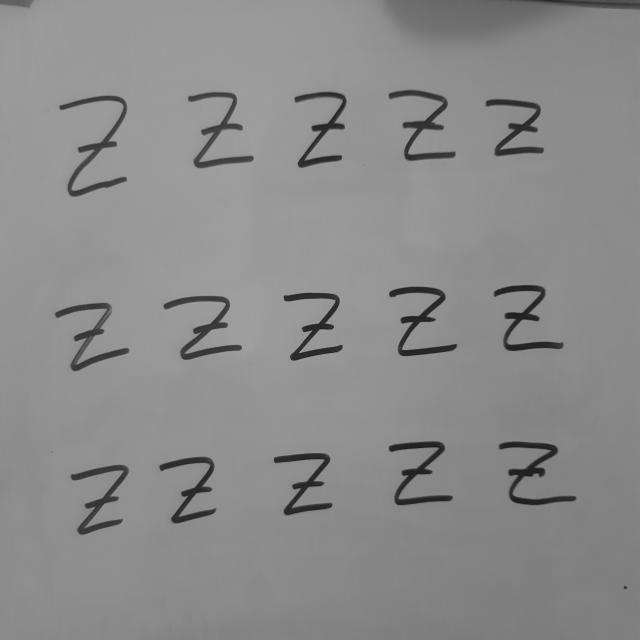 Z Z Z Z Z
Z Z Z Z Z
Z Z Z Z Z